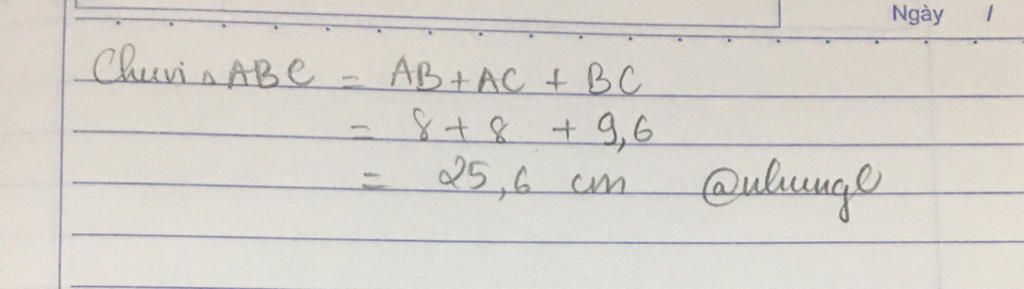 Ngày /
Chuvi △ABC = AB + AC + BC
= 8 + 8 + 9,6
= 25,6 cm @nhungl